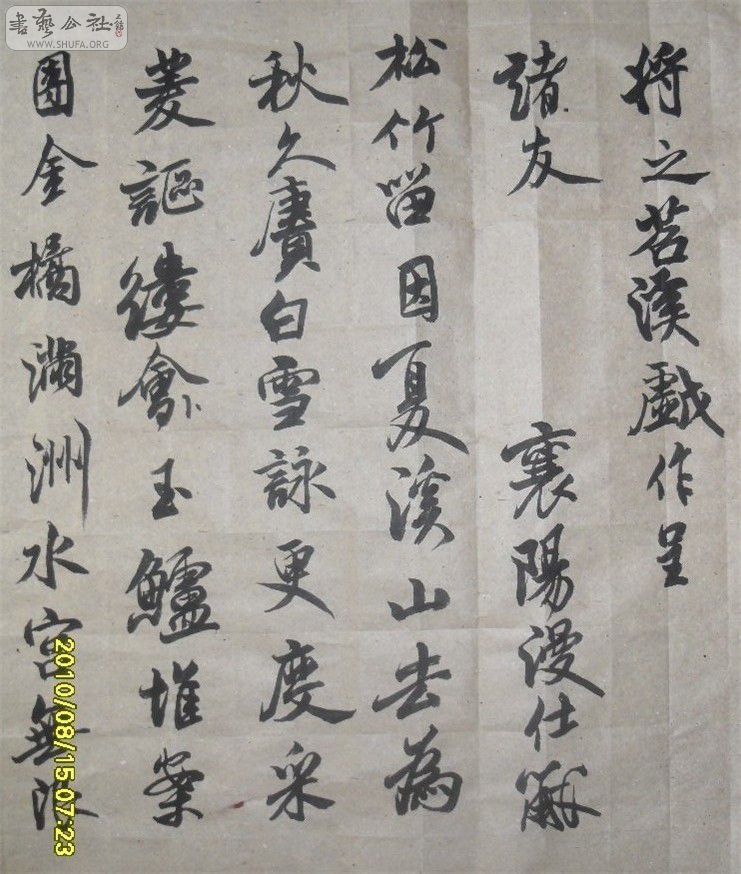 將之苕溪戲作呈
諸友 襄陽漫仕黻
松竹留因夏溪山去為
秋久賡白雪詠更度采
菱謳縷會玉鱸堆案
團金橘滿洲水宮無限
書藝公社
WWW.SHUFA.ORG
2010/08/15 07:23